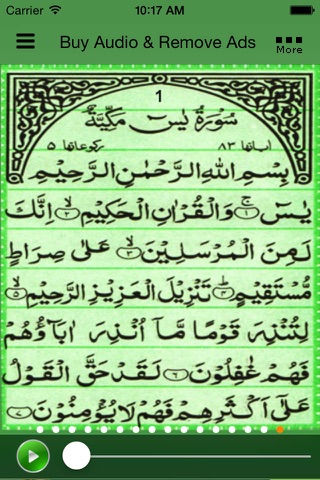 Carrier 10:17 AM
Buy Audio & Remove Ads
More
1
سُوْرَةُ يٰسٓ مَكِّيَّةٌ
اٰیاتها ٨٣ رکوعاتها ٥
بِسْمِ اللّٰهِ الرَّحْمٰنِ الرَّحِيْمِ
يٰسٓ ۝١ وَالْقُرْاٰنِ الْحَكِيْمِ ۝٢ اِنَّكَ
لَمِنَ الْمُرْسَلِيْنَ ۝٣ عَلٰى صِرَاطٍ
مُّسْتَقِيْمٍ ۝٤ تَنْزِيْلَ الْعَزِيْزِ الرَّحِيْمِ ۝٥
لِتُنْذِرَ قَوْمًا مَّآ اُنْذِرَ اٰبَآؤُهُمْ
فَهُمْ غٰفِلُوْنَ ۝٦ لَقَدْ حَقَّ الْقَوْلُ
عَلٰٓى اَكْثَرِهِمْ فَهُمْ لَا يُؤْمِنُوْنَ ۝٧